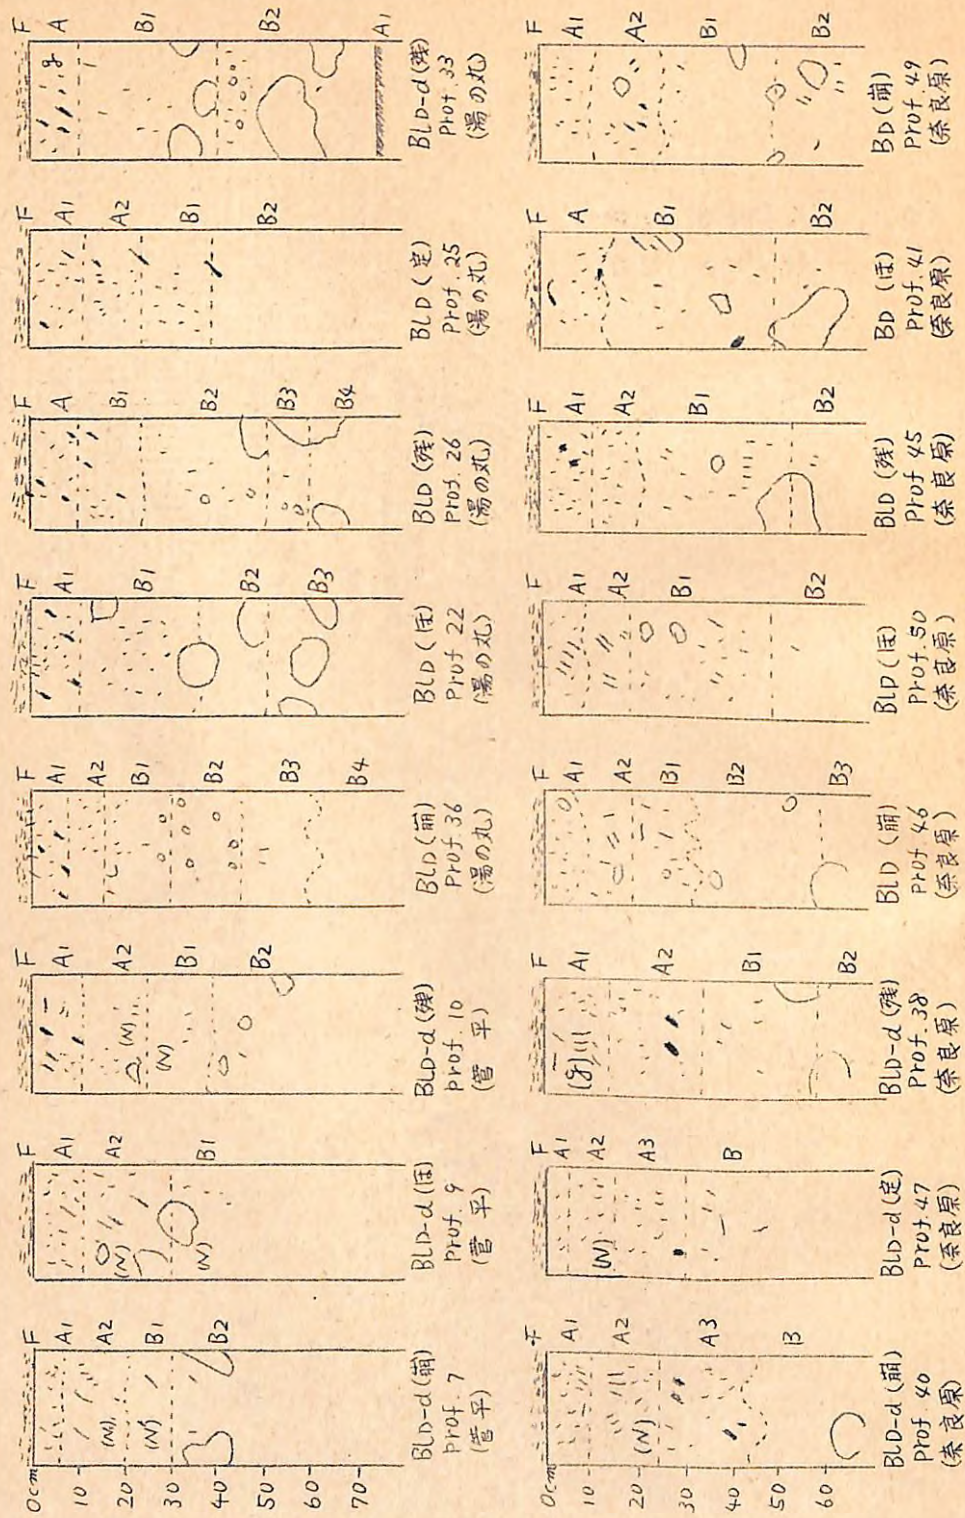 0cm
10
20
30
40
50
60
70
F
A1
A2
B1
B2
(N)
(N)
BLD-d(崩)
Prof. 7
(菅平)
F
A1
A2
B1
(N)
(N)
BLD-d(ほ)
Prof. 9
(菅 平)
F
A1
A2
B1
B2
(N)
(N)
BLD-d(残)
Prof. 10
(菅 平)
F
A1
A2
B1
B2
B3
B4
BLD(崩)
Prof. 36
(湯の丸)
F
A1
B1
B2
B3
BLD(ほ)
Prof 22
(湯の丸)
F
A
B1
B2
B3
B4
BLD(残)
Prof. 26
(湯の丸)
F
A1
A2
B1
B2
BLD(定)
Prof. 25
(湯の丸)
F
A
B1
B2
A1
g
BLD-d(残)
Prof. 33
(湯の丸)
0cm
10
20
30
40
50
60
F
A1
A2
A3
B
(N)
BLD-d(崩)
Prof 40
(奈良原)
F
A1
A2
A3
B
(N)
BLD-d(定)
Prof. 47
(奈良原)
F
A1
A2
B1
B2
(g)
BLD-d(残)
Prof. 38
(奈良原)
F
A1
A2
B1
B2
B3
BLD (崩)
Prof 46
(奈良原)
F
A1
A2
B1
B2
BLD(ほ)
Prof. 50
(奈良原)
F
A1
A2
B1
B2
BLD(残)
Prof 45
(奈良原)
F
A
B1
B2
BD (ほ)
Prof. 41
(奈良原)
F
A1
A2
B1
B2
BD(崩)
Prof. 49
(奈良原)